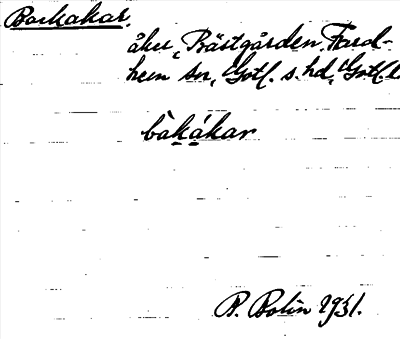 Backakar.
åker, Prästgården, Fard-
hem sn, Gotl. s. hd, Gotl. l
bàkákar
P. Bolin 1931.